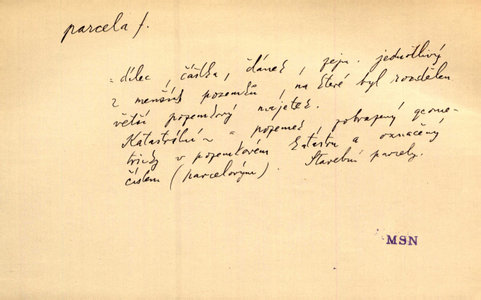 parcela f.
= dílec, částka, článek, zejm. jednotlivý
z menších pozemků, na které byl rozdělen
větší pozemkový majetek.
Katastrální ~ = pozemek zobrazený geome-
tricky v pozemkovém katastru a označený
číslem (parcelovým). Stavební parcely.
MSN